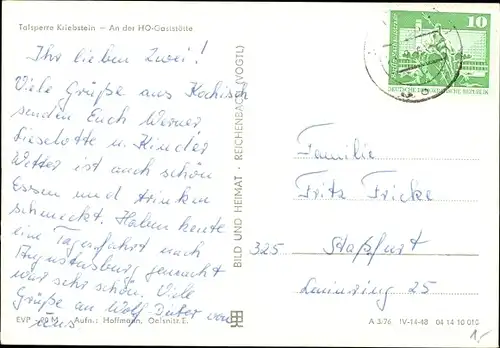 Talsperre Kriebstein — An der HO-Gaststätte
Ihr lieben Zwei!
Viele Grüße aus
senden Euch Werner
Lieselotte u. Kinder
Wetter ist auch schön
Essen und trinken
schmeckt. Haben heute
eine Tagesfahrt nach
Augustusburg gemacht
war sehr schön. Viele
Grüße an Wolf-Dieter von
uns
EVP Aufn.: Hoffmann, Oelsnitz E.
BILD UND HEIMAT · REICHENBACH (VOGTL)
10
DEUTSCHE DEMOKRATISCHE REPUBLIK
Familie
Fritz Fricke
325 Staßfurt
Leninring 25
A 3/76 IV-14-48 04 14 10 010
1,-